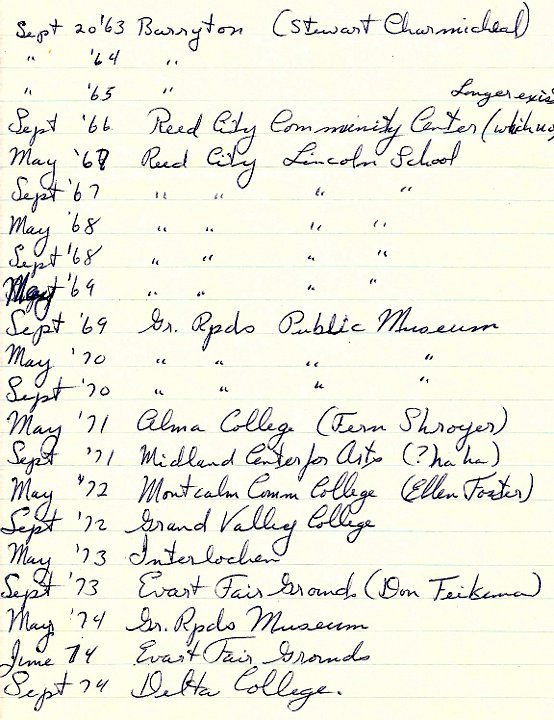 Sept 20 '63 Barryton (Stewart Charmicheal)
" '64 "
" '65 "
Longer exis
Sept '66 Reed City Community Center (which no
May '67 Reed City Lincoln School
Sept '67 " " " "
May '68 " " " "
Sept '68 " " " "
May '69 " " " "
Sept '69 Gr. Rpds Public Museum
May '70 " " " "
Sept '70 " " " "
May '71 Alma College (Fern Shroyer)
Sept '71 Midland Center for Arts (? ha ha)
May '72 Montcalm Comm College (Ellen Foster)
Sept '72 Grand Valley College
May '73 Interlochen
Sept '73 Evart Fair Grounds (Don Feikema)
May '74 Gr. Rpds Museum
June 74 Evart Fair Grounds
Sept 74 Delta College.